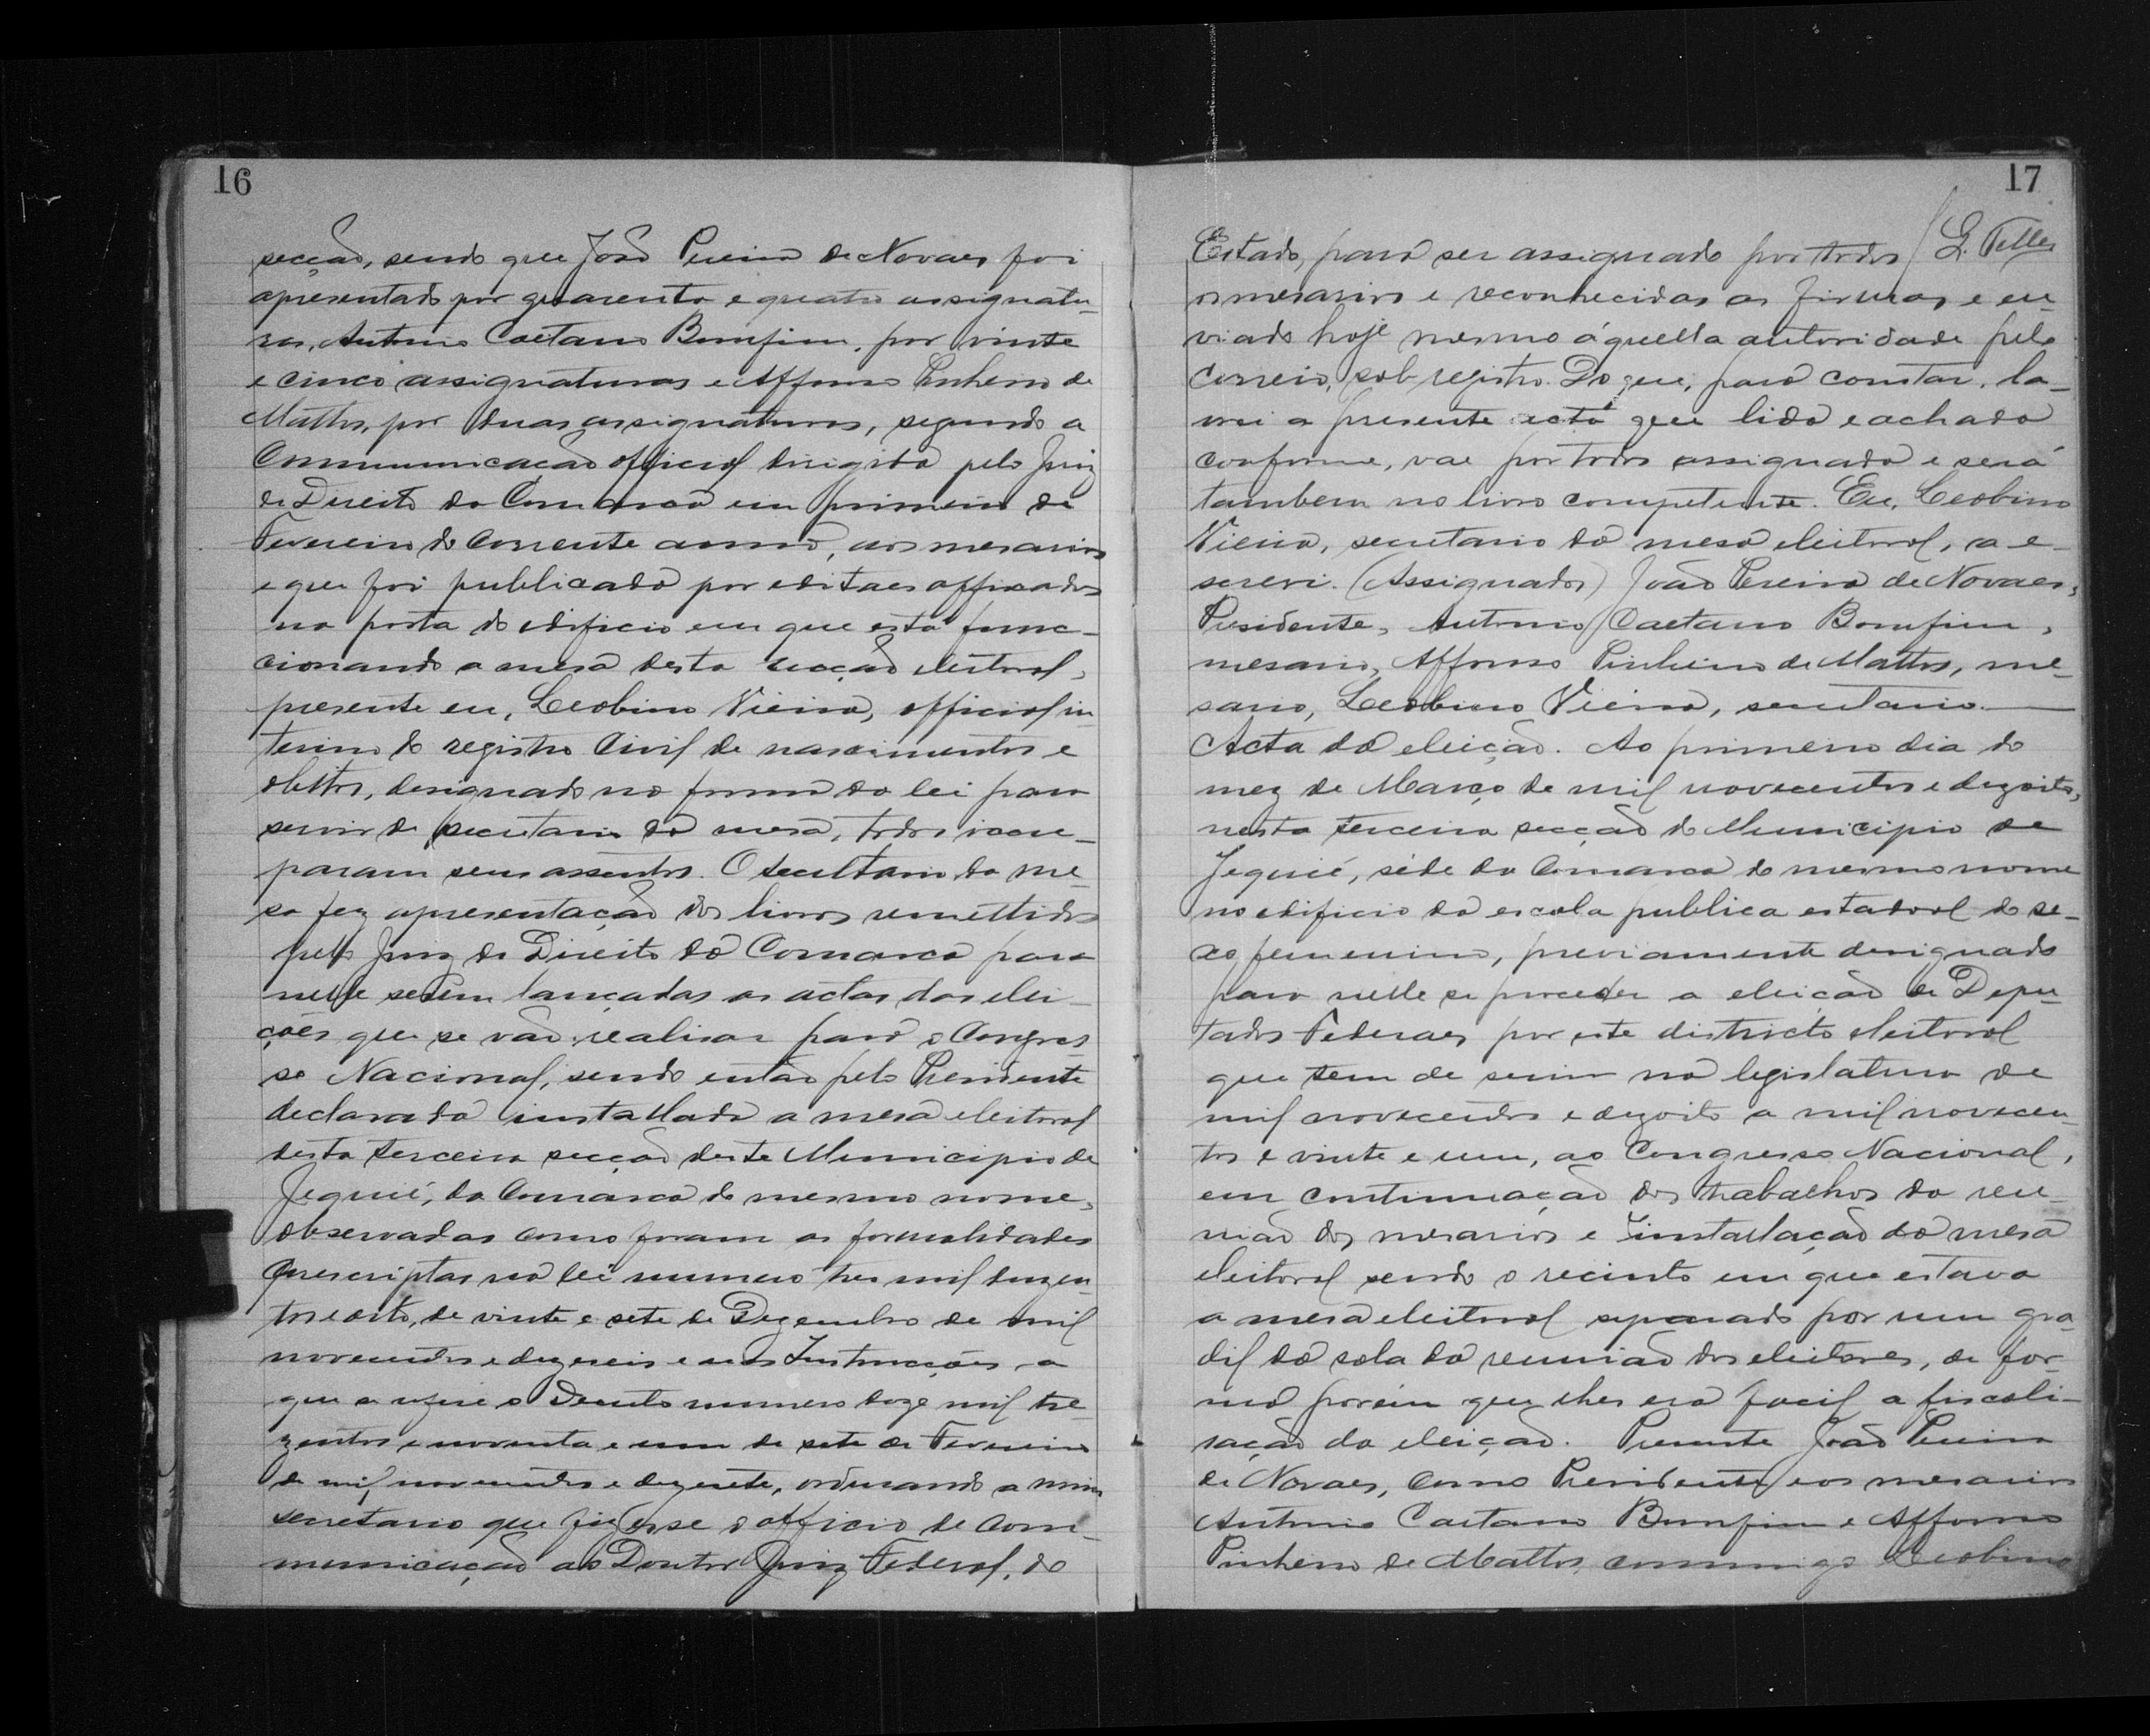 16
secção, sendo que João Pereira de Novaes foi
apresentado por quarenta e quatro assignatu-
ras, Antonio Caetano Bomfim, por vinte
e cinco assignaturas e Affonso Pinheiro de
Mattos, por duas assignaturas, segundo a
Communicação official dirigida pelo Juiz
de Direito da Comarca em primeiro de
Fevereiro do corrente anno, aos mesarios
e que foi publicada por editaes affixados
na porta do edificio em que está func-
cionando a mesa desta secção eleitoral,
presente eu, Leobino Vieira, official in-
terino do registro Civil de nascimentos e
obitos, designado na forma da lei para
servir de secretario da mesa, todos occu-
param seus assentos. O secretario da me-
sa fez apresentação dos livros remettidos
pelo Juiz de Direito da Comarca para
nelle serem lançadas as actas das elei-
ções que se vão realisar para o Congres
so Nacional, sendo então pelo Presidente
declarada installada a mesa eleitoral
desta terceira secção deste Municipio de
Jequié, da Comarca do mesmo nome,
observadas como foram as formalidades
prescriptas na lei numero tres mil duzen-
tos e oito, de vinte e sete de Dezembro de mil
novecentos e dezeseis e nas Instrucções a
que se refere o Decreto numero doze mil tre-
zentos e noventa e um de sete de Fevereiro
de mil novecentos e dezesete, ordenando a mim
secretario que fizesse o officio de com-
municação ao Doutor Juiz Federal, do
17
Estado, para ser assignado por todos / L. Telles
os mesarios e reconhecidas as firmas e en-
viado hoje mesmo áquella autoridade pelo
Correio, sob registro. Do que, para constar, la-
vrei a presente acta que lida e achada
conforme, vae por todos assignada e será
tambem no livro competente. Eu, Leobino
Vieira, secretario da mesa eleitoral, a e-
screvi. (Assignados) João Pereira de Novaes,
Presidente, Antonio Caetano Bomfim,
mesario, Affonso Pinheiro de Mattos, me-
sario, Leobino Vieira, secretario.
Acta da eleição. Ao primeiro dia do
mez de Março de mil novecentos e dezoito,
nesta terceira secção do Municipio de
Jequié, séde da Comarca do mesmo nome
no edificio da escola publica estadoal do se-
xo femenino, previamente designado
para nelle se proceder a eleição de Depu-
tados Federaes por este districto eleitoral
que tem de servir na legislatura de
mil novecentos e dezoito a mil novecen-
tos e vinte e um, ao Congresso Nacional,
em continuação dos trabalhos da reu-
nião dos mesarios e installação da mesa
eleitoral sendo o recinto em que estava
a mesa eleitoral separado por um gra-
dil da sala da reunião dos eleitores, de for-
ma porém que lhes era facil a fiscali-
sação da eleição. Presente João Pereira
de Novaes, como Presidente, e os mesarios
Antonio Caetano Bomfim e Affonso
Pinheiro de Mattos, commigo Leobino